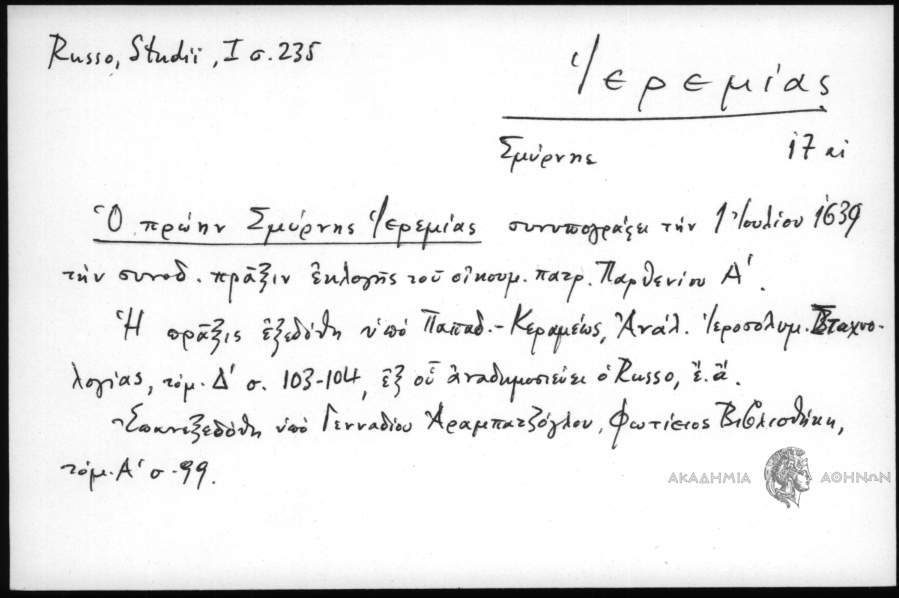 Russo, Studii, I σ. 235
Ἱερεμίας
Σμύρνης 17 αἰ
Ὁ πρώην Σμύρνης Ἱερεμίας συνυπογράφει τὴν 1 Ἰουλίου 1639
τὴν συνοδ. πρᾶξιν ἐκλογῆς τοῦ οἰκουμ. πατρ. Παρθενίου Α΄.
Ἡ πρᾶξις ἐξεδόθη ὑπὸ Παπαδ.-Κεραμέως, Ἀνάλ. Ἱεροσολυμ. Σταχυο-
λογίας, τόμ. Δ΄ σ. 103-104, ἐξ οὗ ἀναδημοσιεύει ὁ Russo, ἔ.ἀ.
Ἐπανεξεδόθη ὑπὸ Γενναδίου Ἀραμπατζόγλου, Φωτίειος Βιβλιοθήκη,
τόμ. Α΄ σ. 99.
ΑΚΑΔΗΜΙΑ ΑΘΗΝΩΝ